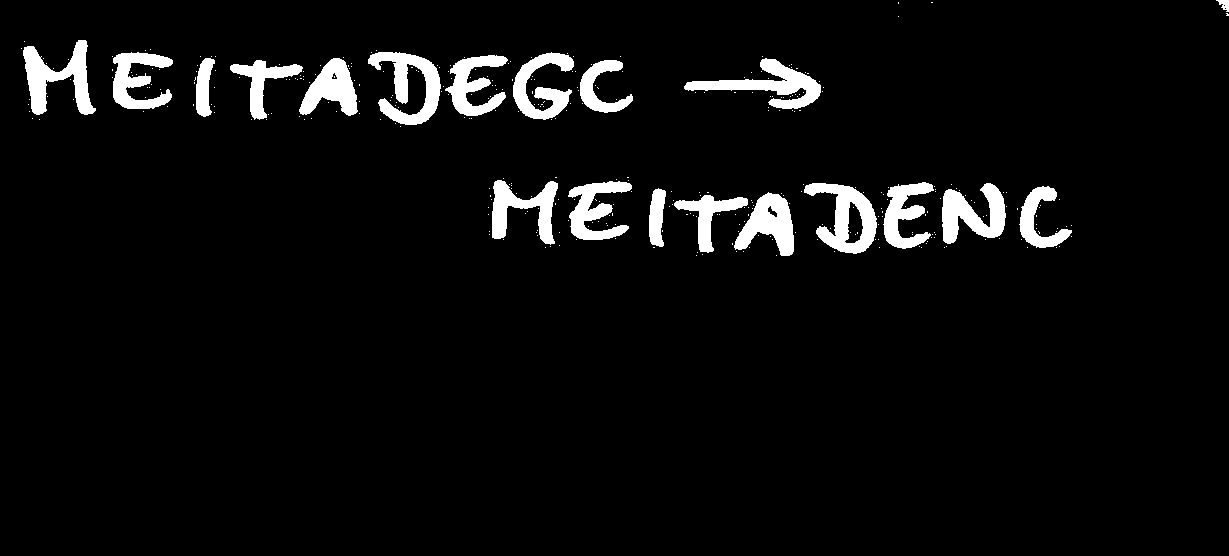 MEITADEGC →
MEITADENC